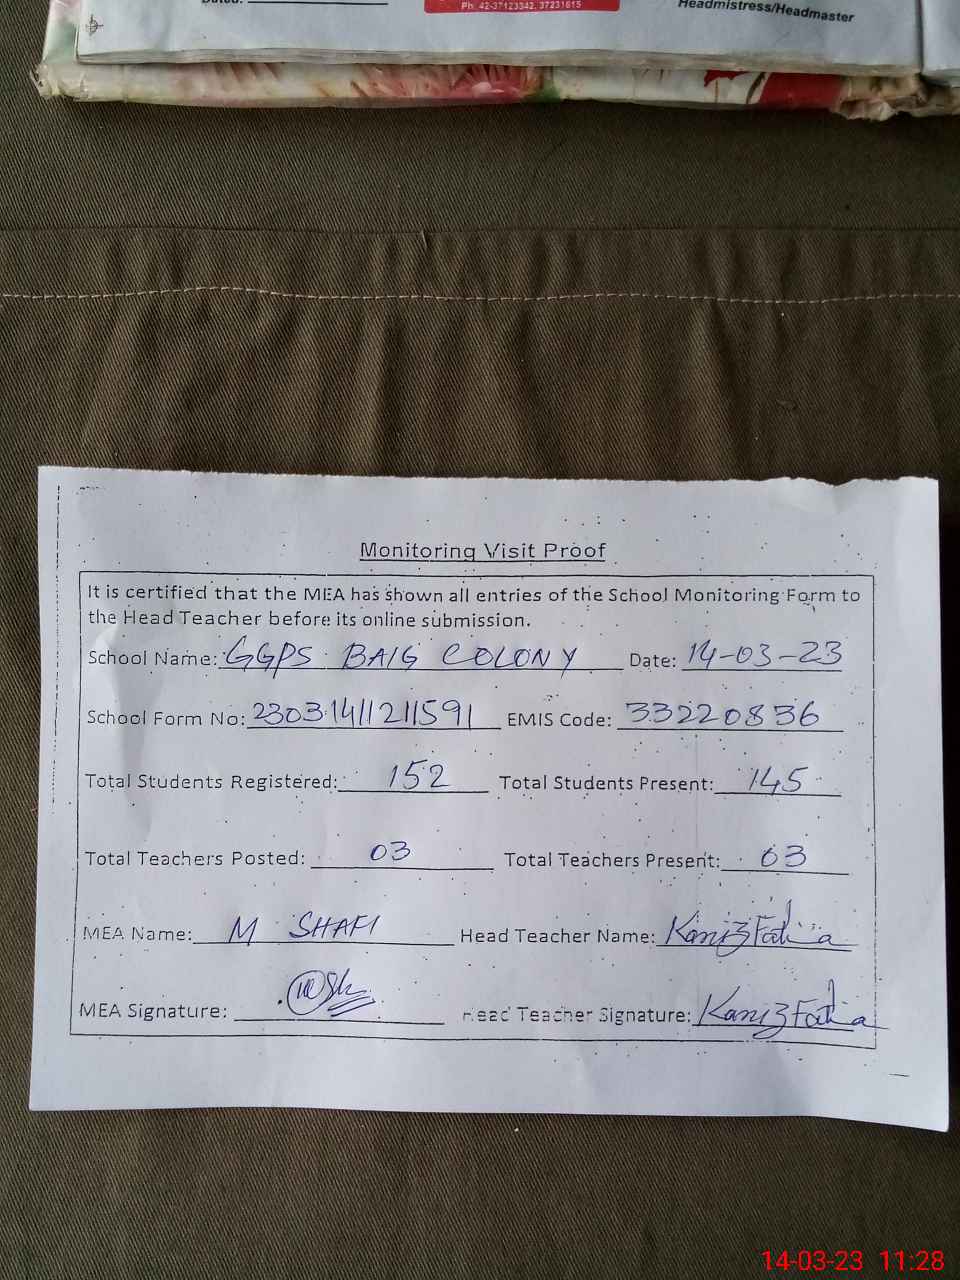 Dated:
Ph: 42-37123342, 37231615
Headmistress/Headmaster
Monitoring Visit Proof
It is certified that the MEA has shown all entries of the School Monitoring Form to
the Head Teacher before its online submission.
School Name: GGPS BAIG COLONY Date: 14-03-23
School Form No: 2303141121​1591 EMIS Code: 33220836
Total Students Registered: 152 Total Students Present: 145
Total Teachers Posted: 03 Total Teachers Present: 03
MEA Name: M SHAFI Head Teacher Name: Kaniz Fatima
MEA Signature: Head Teacher Signature: Kaniz Fatima
14-03-23 11:28